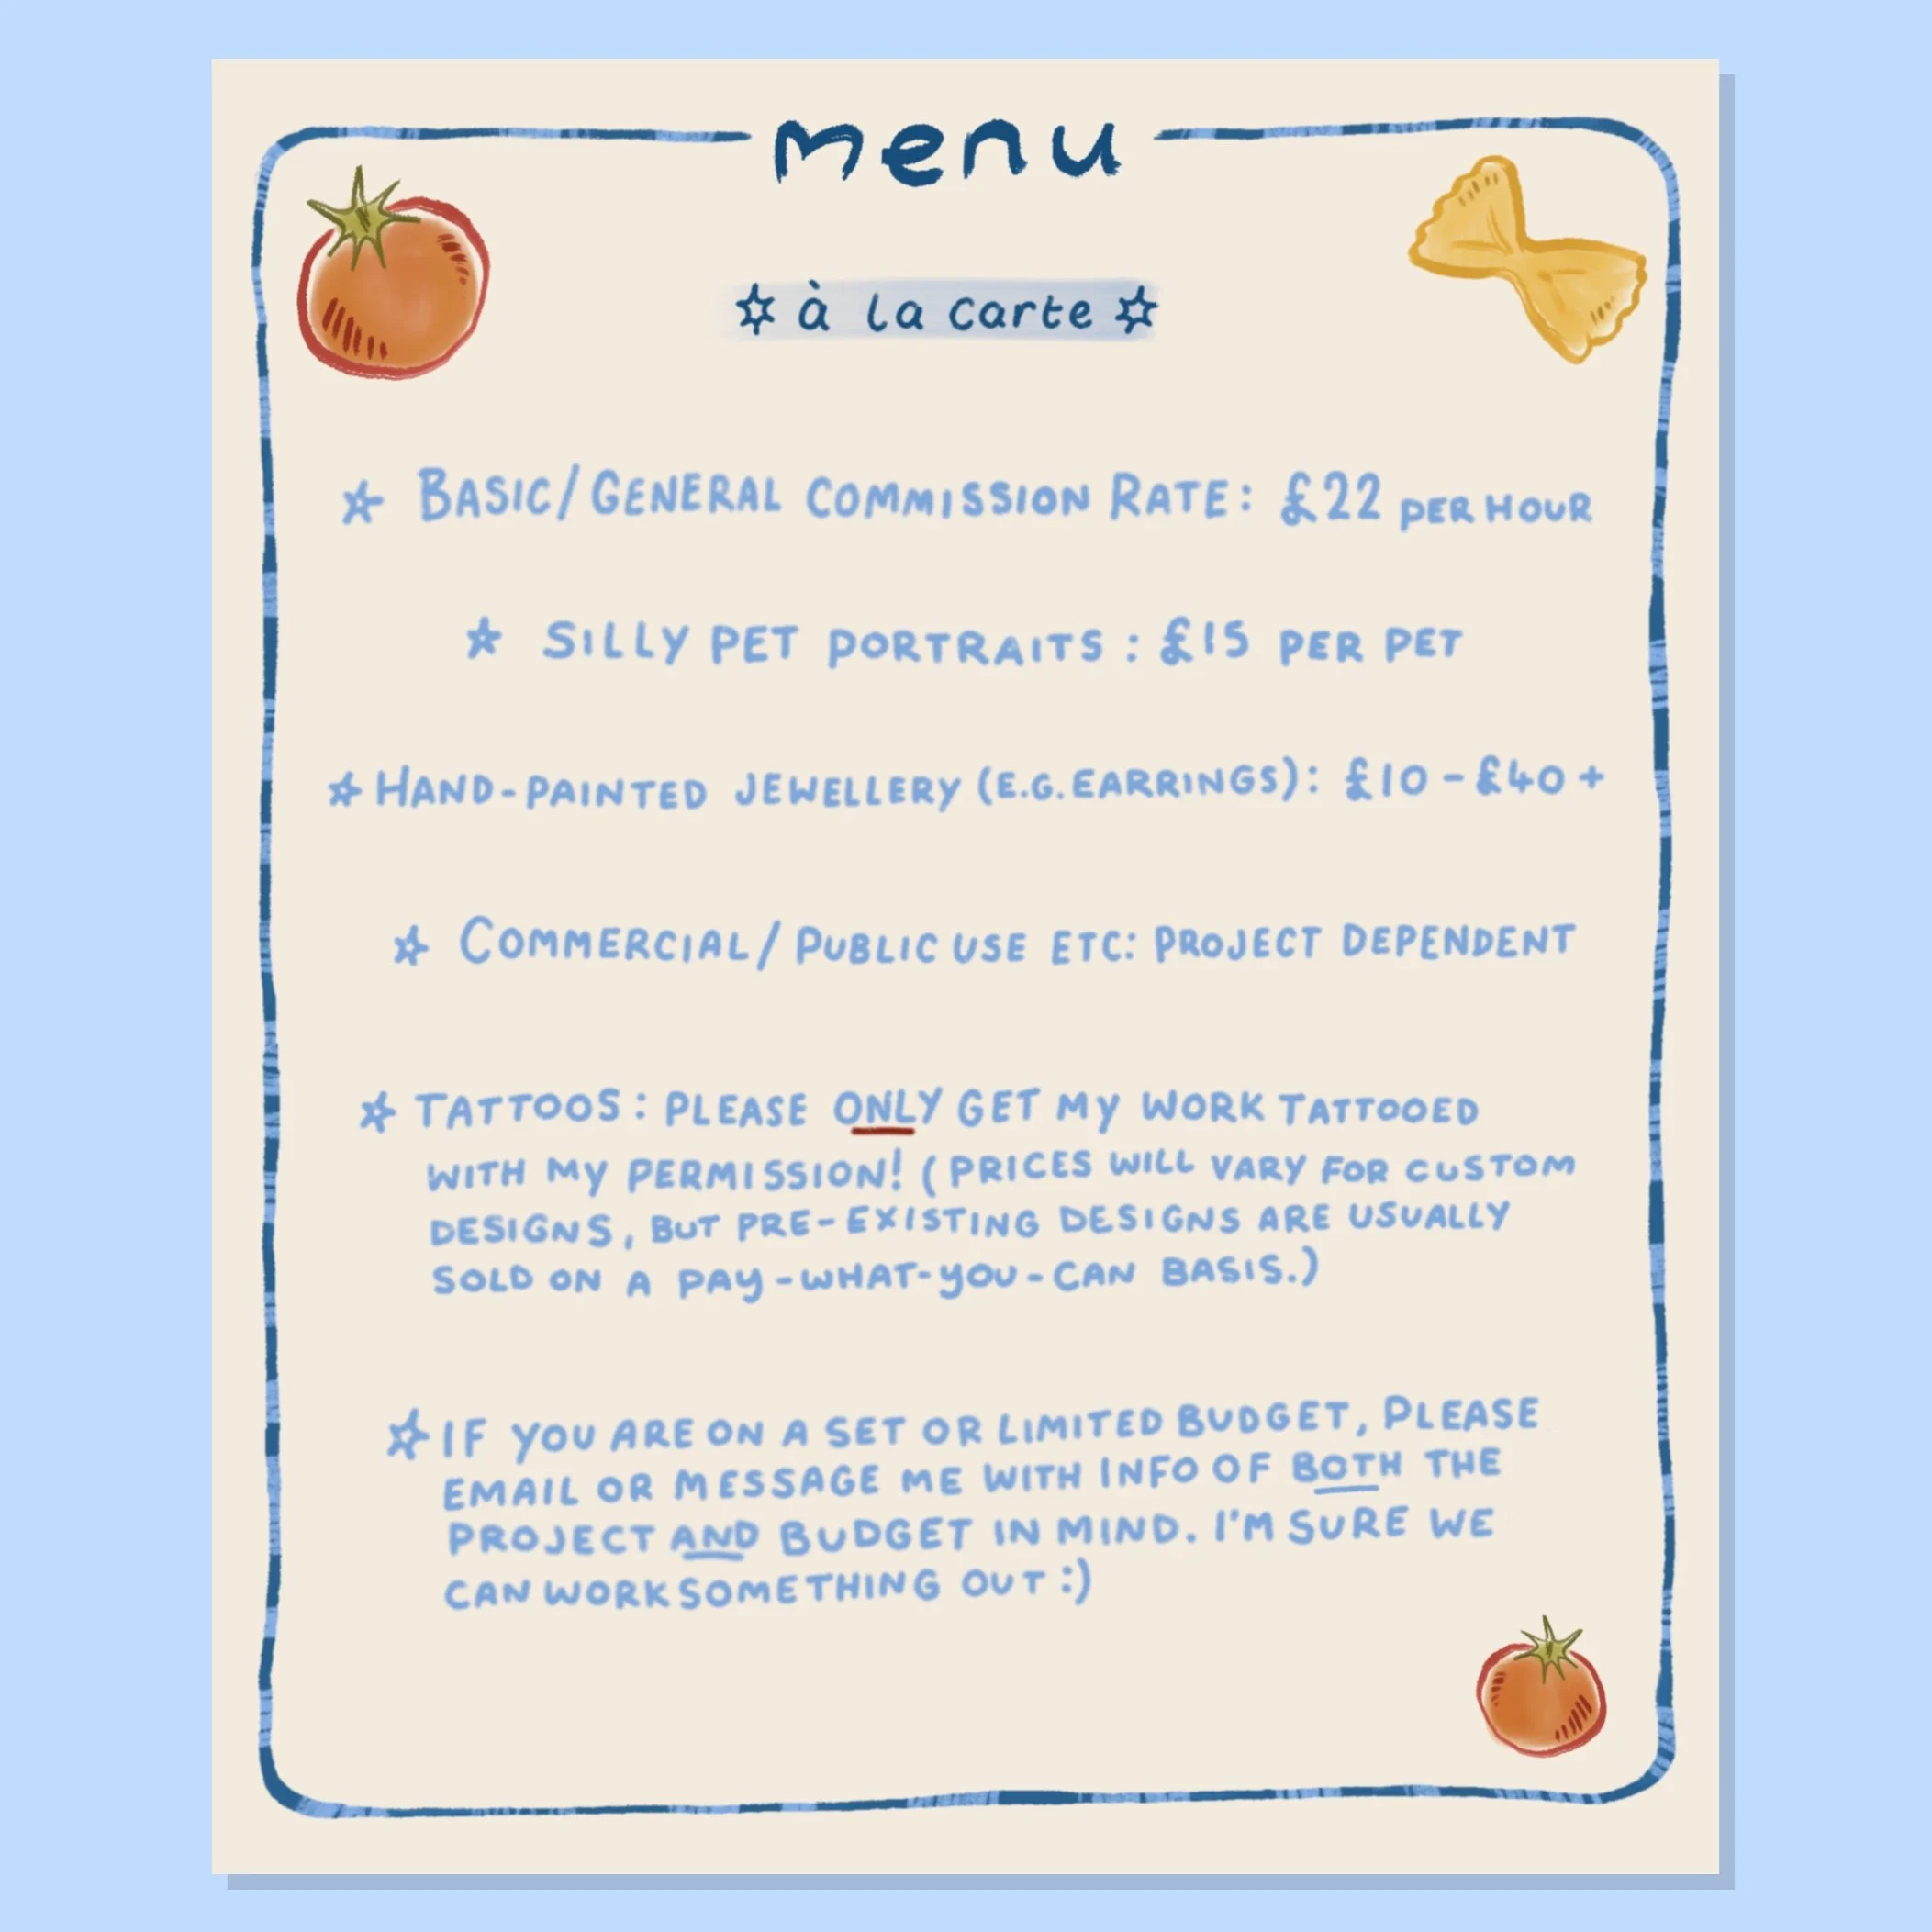 menu
à la carte
BASIC/GENERAL COMMISSION RATE: £22 PER HOUR
SILLY PET PORTRAITS : £15 PER PET
HAND-PAINTED JEWELLERY (E.G. EARRINGS): £10 - £40 +
COMMERCIAL/ PUBLIC USE ETC: PROJECT DEPENDENT
TATTOOS: PLEASE ONLY GET MY WORK TATTOOED
WITH MY PERMISSION! (PRICES WILL VARY FOR CUSTOM
DESIGNS, BUT PRE-EXISTING DESIGNS ARE USUALLY
SOLD ON A PAY-WHAT-YOU-CAN BASIS.)
IF YOU ARE ON A SET OR LIMITED BUDGET, PLEASE
EMAIL OR MESSAGE ME WITH INFO OF BOTH THE
PROJECT AND BUDGET IN MIND. I'M SURE WE
CAN WORK SOMETHING OUT :)